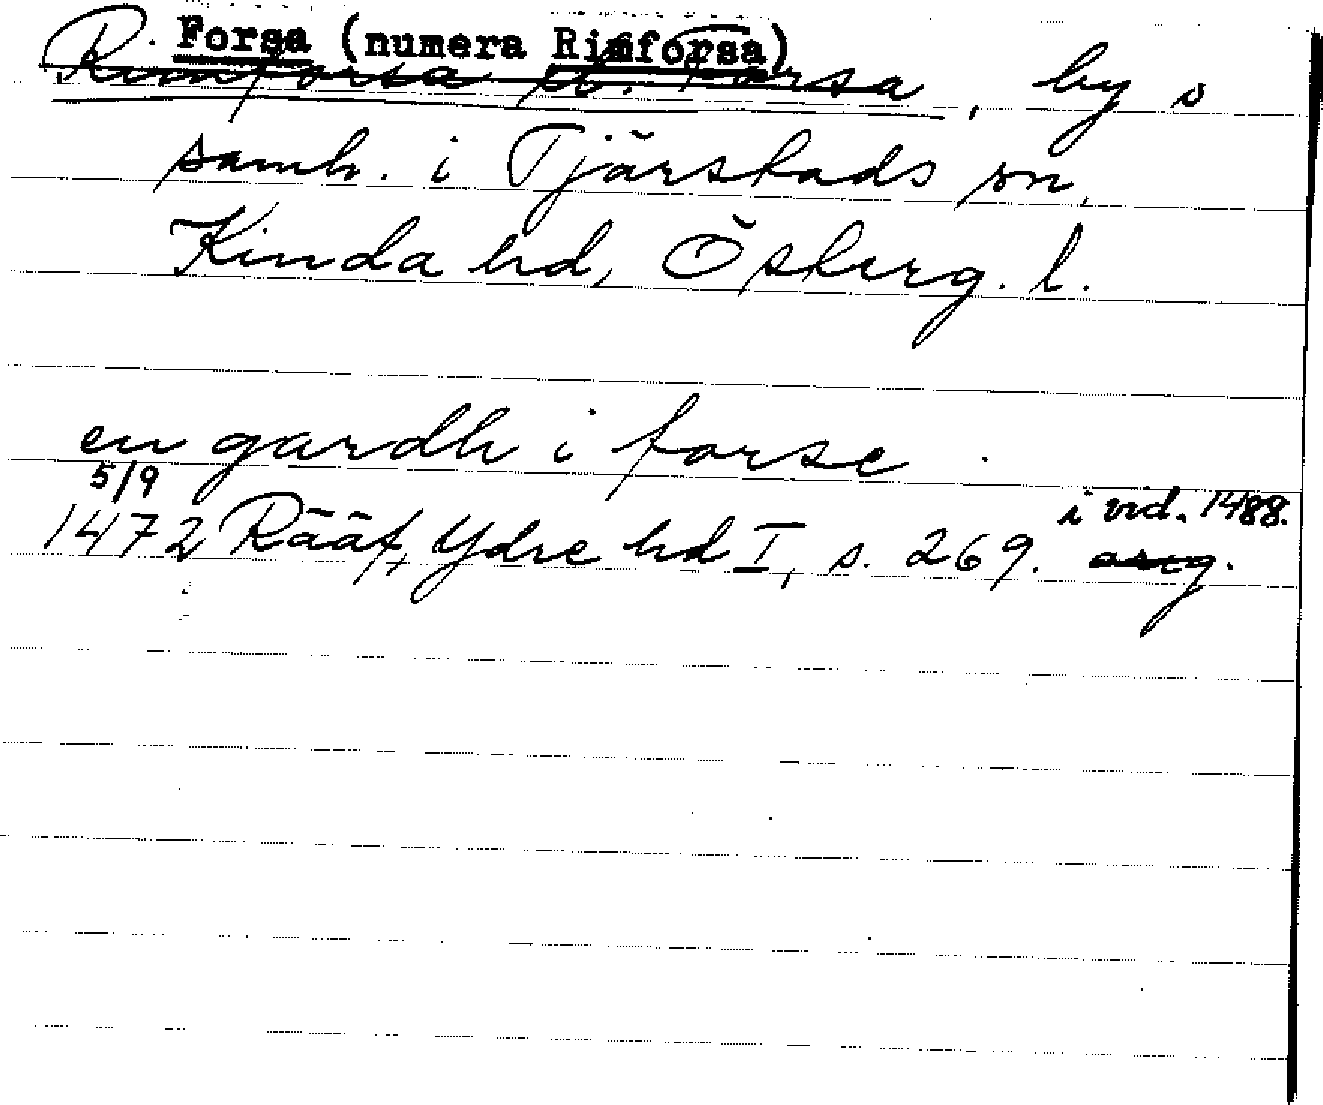 Forsa (numera Rimforsa)
Rimforsa el. Forsa, by o
samh. i Tjärstads sn,
Kinda hd, Österg. l.
en gardh i forse.
5/9 i vid. 1488.
1472 Rääf, Ydre hd I, s. 269. orig.